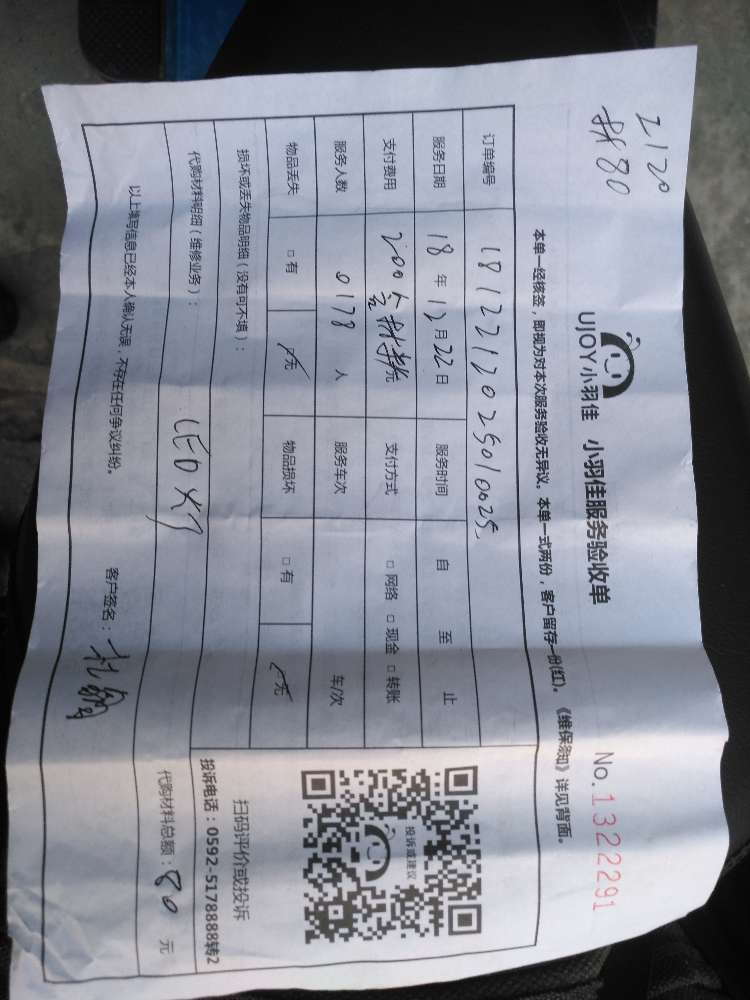 2120
材80
UJOY小羽佳 小羽佳服务验收单
No.1322291
本单一经核签，即视为对本次服务验收无异议。本单一式两份，客户留存一份(红)。《维保须知》详见背面。
订单编号 1812212025010025
服务日期 18年12月22日 服务时间 自 至 止
支付费用 200含材料元 支付方式 □网络 □现金 □转账
服务人数 0178人 服务车次 车/次
物品丢失 □有 无 物品损坏 □有 无
损坏或丢失物品明细（没有可不填）：
代购材料明细（维修业务）：
LED灯
投诉或建议
扫码评价或投诉
投诉电话：0592-5178888转2
代购材料总额：80元
以上填写信息已经本人确认无误，不存在任何争议纠纷。 客户签名：